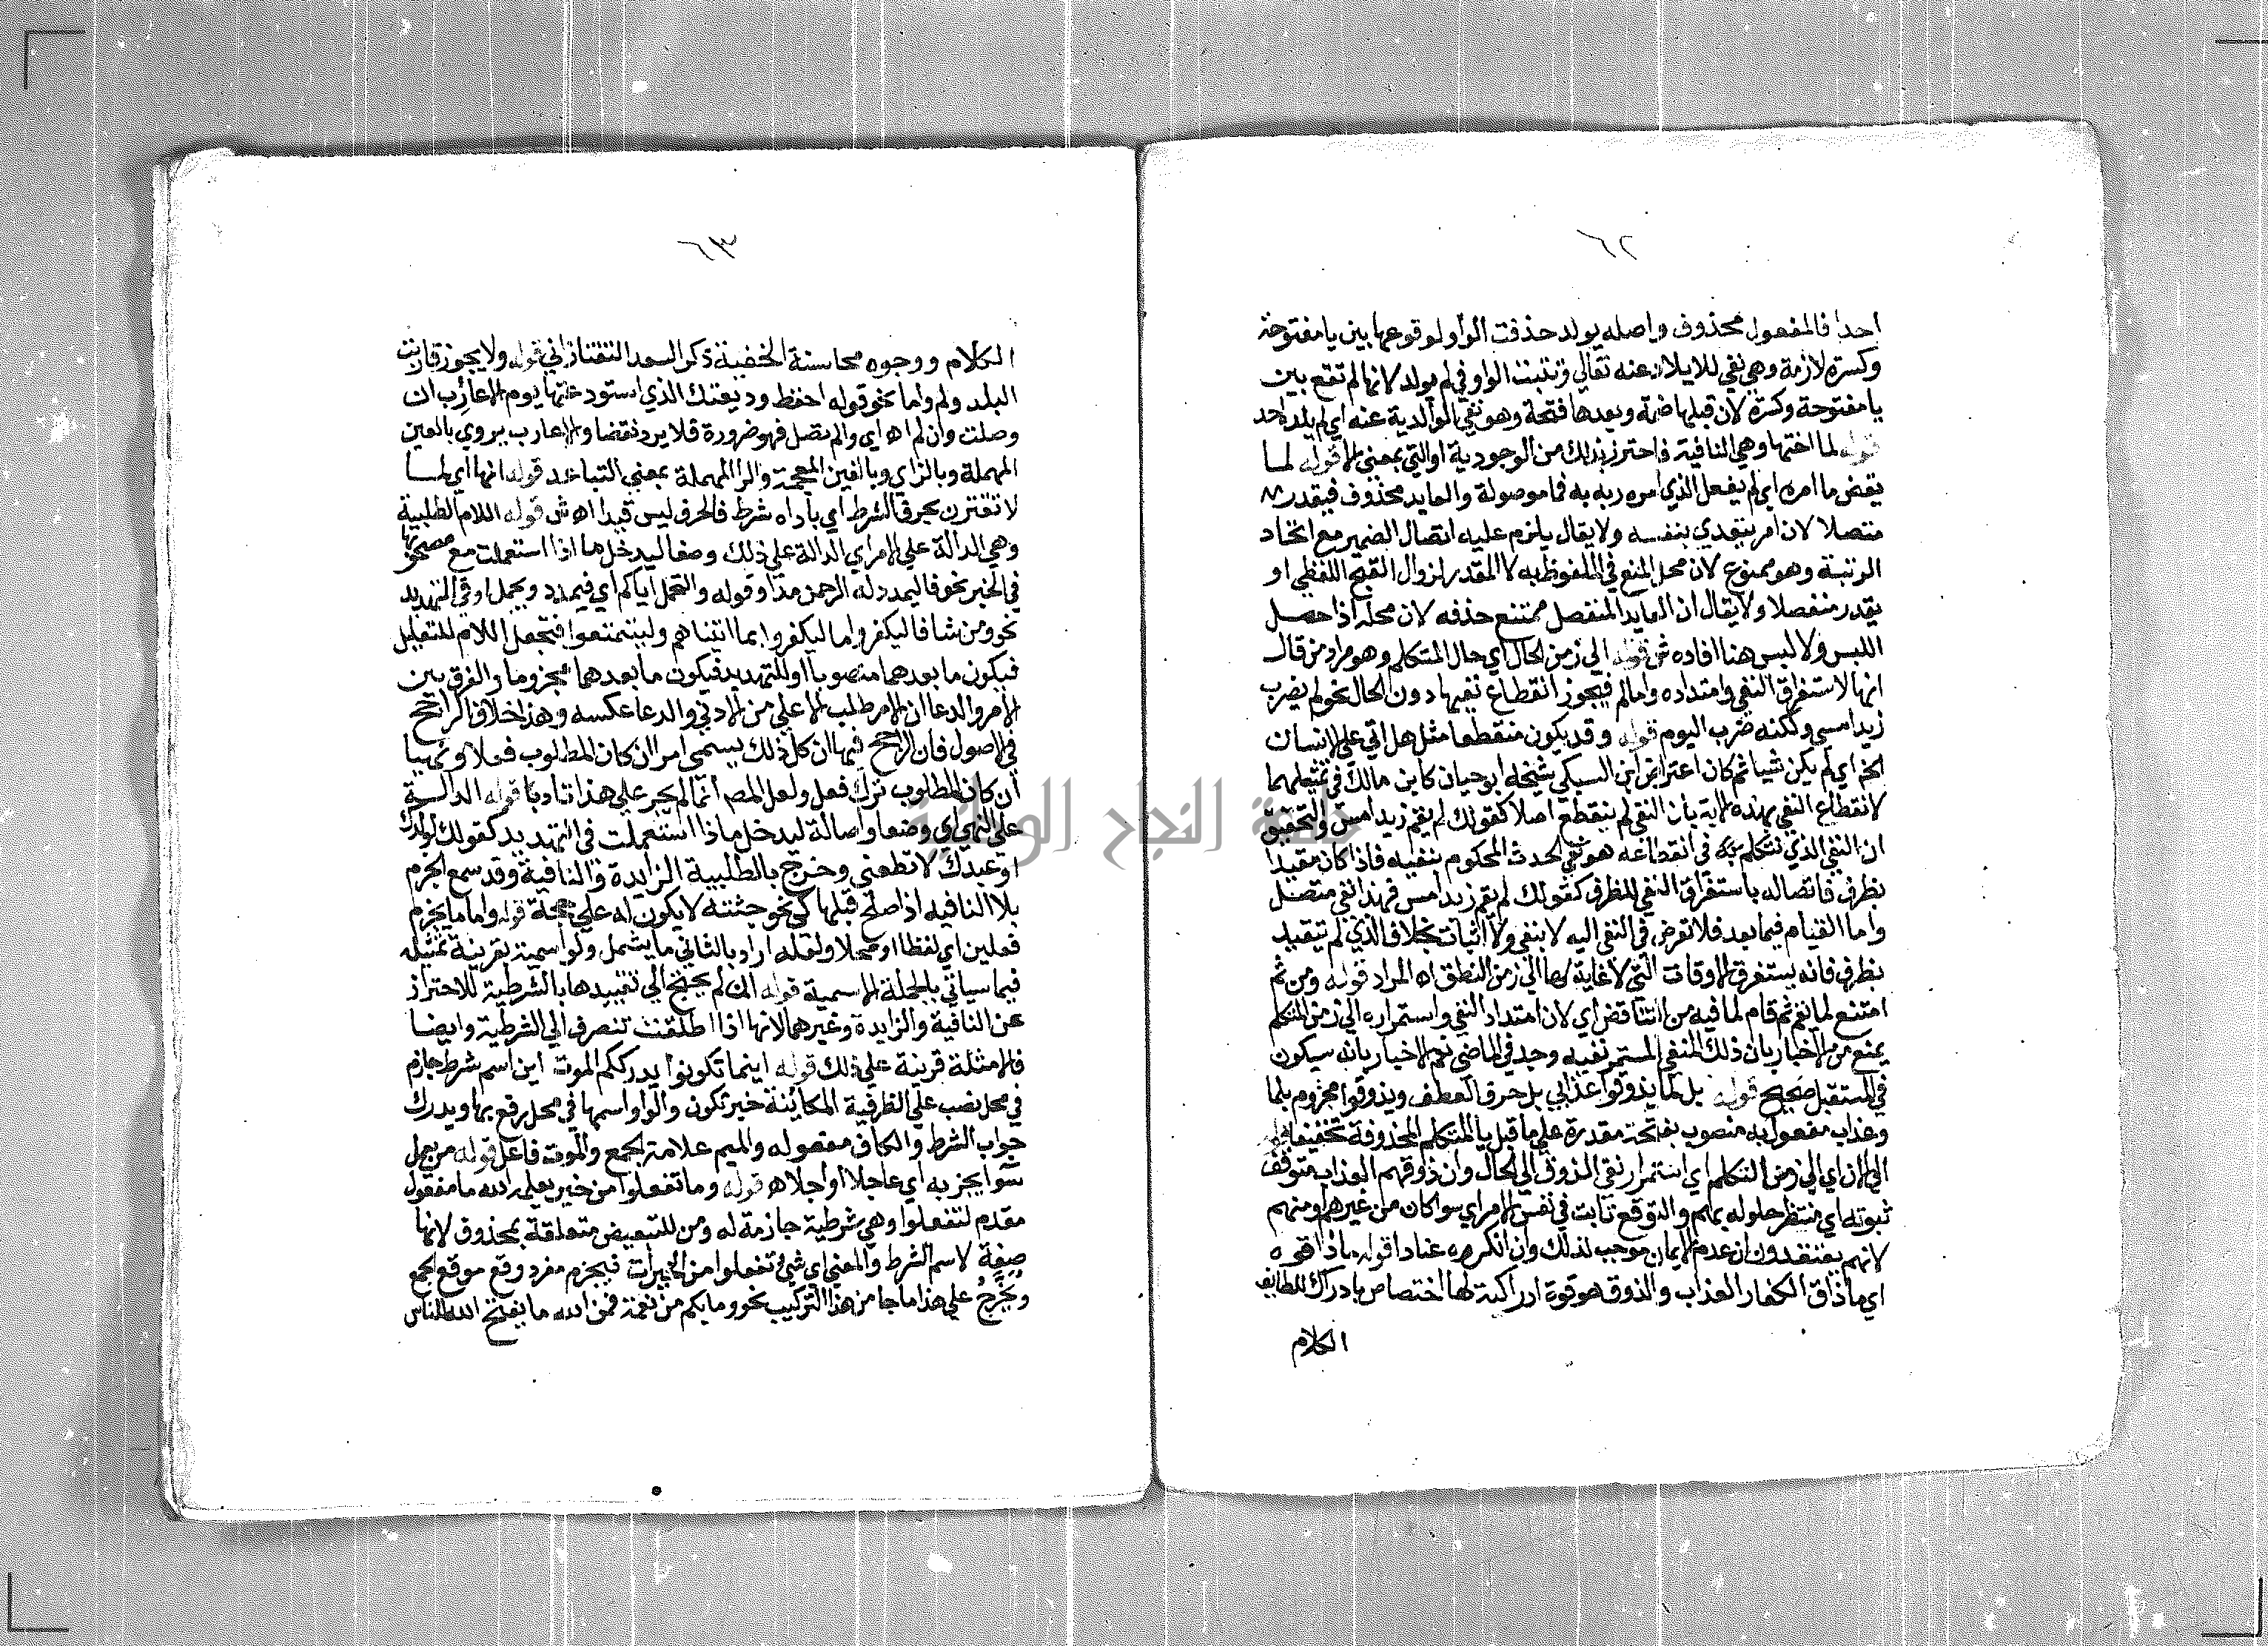 ٦٢
احدا فالمفعول محذوف واصله يولد حذفت الواو لوقوعها بين يا مفتوحة
وكسرة لازمة وهي نفي للايلاد عنه تعالي وتثبت الواو في لم يولد لانها لم تقع بين
يا مفتوحة وكسرة لان قبلها ضمة وبعدها فتحة وهو نفي الوالدية عنه اي لم يلد احد
قوله لما اختها وهي النافية فاحترز بذلك من الوجودية او التي بمعني الا قوله لما
يقض ما امره اي لم يفعل الذي امره ربه به فما موصولة والعايد محذوف فيقدر
متصلا لان امر يتعدي بنفسه ولا يقال يلزم عليه اتصال الضمير مع اتحاد
الرتبة وهو ممنوع لان محل المنع في الملفوظ به لا المقدر لزوال القبح اللفظي او
يقدر منفصلا ولا يقال ان العايد المنفصل ممتنع حذفه لان محله اذا حصل
اللبس ولا لبس هنا افاده ش قوله الي زمن الحال اي حال المتكلم وهو مراد من قال
انها لاستغراق النفي وامتداده واما لم فيجوز انقطاع نفيها دون الحال نحو لم يضرب
زيد امس ولكنه ضرب اليوم قوله وقد يكون منقطعا مثل هل اتي علي الانسان
الخ اي لم يكن شيا ثم كان اعترض ابن السبكي شيخه ابو حيان كابن مالك في تمثيلهما
لانقطاع النفي بهذه الاية بان النفي لم ينقطع اصلا كقولك لم يقم زيد امس والتحقيق
ان النفي الذي نتكلم في انقطاعه هو نفي الحدث المحكوم بنفيه فاذا كان مقيدا
بظرف فاتصاله باستغراق النفي للظرف كقولك لم يقم زيد امس فهذا نفي متصل
واما القيام فيما بعد فلا تعرض في النفي اليه لا بنفي ولا اثبات بخلاف الذي لم تتقيد
بظرف فانه يستغرق الاوقات التي لا غاية لها الي زمن النطق اه المراد قوله ومن ثم
امتنع لما يقم ثم قام لما فيه من التناقض اي لان امتداد النفي واستمراره الي زمن المتكلم
يمنع من الاخبار بان ذلك المنفي المستمر نفيه وجد في الماضي نعم الاخبار بانه سيكون
في المستقبل صحيح قوله بل لما يذوقوا عذابي بل حرف العطف ويذوقوا مجزوم بلما
وعذاب مفعول به منصوب بفتحة مقدرة علي ما قبل يا المتكلم المحذوفة تخفيفا
الي الان اي الي زمن التكلم اي استمرار نفي الذوق الي الحال وان ذوقهم العذاب متوقف
ثبوته اي منتظر حلوله بهم والتوقع ثابت في نفس الامر اي سوا كان من غيرهم او منهم
لانهم يعتقدون ان عدم الايمان موجب لذلك وان انكروه عنادا قوله ماذاقوه
اي ما ذاق الكفار العذاب والذوق هو قوة ادراكية لها اختصاص بادراك لطايف
الكلام
٦٣
الكلام ووجوه محاسنة الخفية ذكر السعد التفتازاني قوله ولا يجوز قاربت
البلد ولم واما نحو قوله احفظ وديعتك الذي استودعتها يوم الاعازب ان
وصلت وان لم اه اي والم تصل فهو ضرورة فلا يرد نقضا والاعازب يروي بالعين
المهملة وبالزاي وبالغين المعجمة والرا المهملة بمعني التباعد قوله انها اي لمـا
لا تقترن بحرف الشرط اي باداه شرط فالحرف ليس قيدا اه ش قوله اللام الطلبية
وهي الدالة علي الامر اي الدالة علي ذلك وضعا ليدخل ما اذا استعملت مع مصحوبها
في الخبر نحو فاليمدد له الرحمن مدا وقوله والنحمل اياكم اي فيمدد ويحمل او في التهديد
نحو ومن شا فاليكفر واما ليكفروا بما اتيناهم وليتمتعوا فتجعل اللام للتعليل
فيكون ما بعدهما منصوبا او للتهديد فيكون ما بعدهما مجزوما والفرق بين
الامر والدعا ان الامر طلب الاعلي من الادني والدعا عكسه وهذا خلاف الراجح
في الاصول فان الراجح فيها ان كل ذلك يسمي امرا ان كان المطلوب فعلا ونهيا
ان كان المطلوب ترك فعل ولعل المصـ انما لم يجر علي هذا تادبا قوله الدالة
علي النهي اي وضعا واصالة ليدخل ماذا استعملت في التهديد كقولك لولدك
او عبدك لا تطعني وخرج بالطلبية الزايدة والنافية وقد سمع الجزم
بلا النافية اذا صلح قبلها كي نحو جئته لا يكون له علي حجة قوله واما ما يجزم
فعلين اي لفظا او محلا ولعله اراد بالثاني ما يشمل ولو اسمية بقرينة تمثيله
فيما سياتي بالجملة الاسمية قوله ان لم يحتج الي تقييدها بالشرطية للاحتراز
عن النافية والزايدة وغيرهما لانها اذا اطلقت تنصرف الي الشرطية وايضا
فالامثلة قرينة علي ذلك قوله اينما تكونوا يدرككم الموت اين اسم شرط جازم
في محل نصب علي الظرفية المكانية خبر تكون والواو اسمها في محل رفع بها ويدرك
جواب الشرط والكاف مفعوله والميم علامة الجمع والموت فاعل قوله من يعمل
سوا يجز به اي عاجلا او اجلا اه قوله وما تفعلوا من خير يعلمه الله ما مفعول
مقدم لتفعلوا وهي شرطية جازمة له ومن للتبعيض متعلقة بمحذوف لانها
صفة لاسم الشرط والمعني اي شيء تفعلوا من الخيرات فيجزم مفرد وقع موقع الجمع
ويخرج علي هذا ما جا من هذا التركيب نحو وما بكم من نعمة فمن الله ما يفتح الله للناس